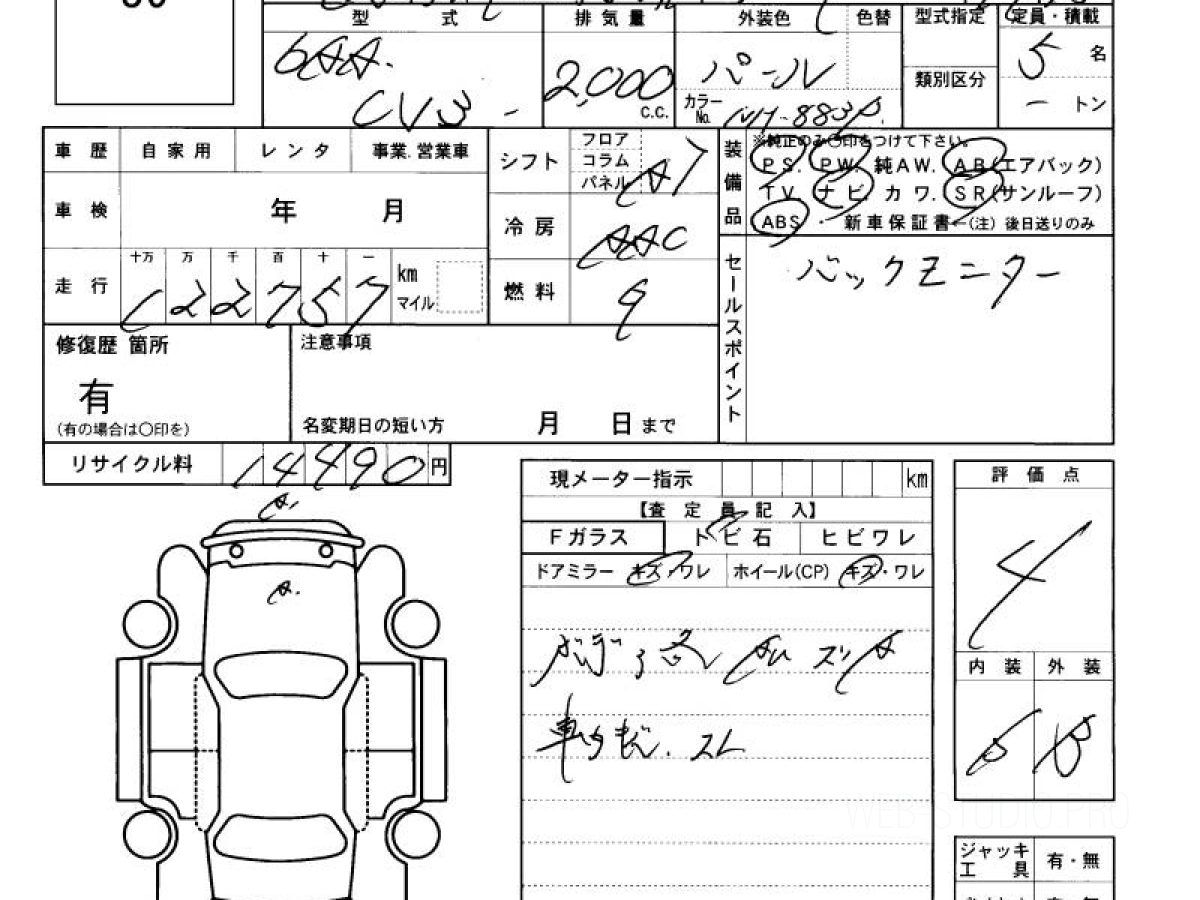 型 式 排気量 外装色 色替 型式指定 定員・積載
6AA. 2,000 c.c. パール 5 名
CV3 - カラーNo. NH-883P. 類別区分 - トン
車歴 自家用 レンタ 事業.営業車 シフト フロア コラム パネル AT
装備品 ※純正のみ〇印をつけて下さい。
PS. PW. 純AW. AB(エアバック)
TV ナビ カワ. SR(サンルーフ)
ABS ・ 新車保証書←(注) 後日送りのみ
車検 年 月 冷房 AAC
走行 十万 万 千 百 十 一
122757 km マイル 燃料
セールスポイント バックモニター
修復歴 箇所 注意事項
有
(有の場合は〇印を) 名変期日の短い方 月 日 まで
リサイクル料 14490 円
現メーター指示 km 評価点
【査定員記入】 4
Fガラス トビ石 ヒビワレ
ドアミラー キズ・ワレ ホイール(CP) キズ・ワレ
A.
A.
内装 外装
B B
ジャッキ 工具 有・無
WEB-STUDIO.PRO